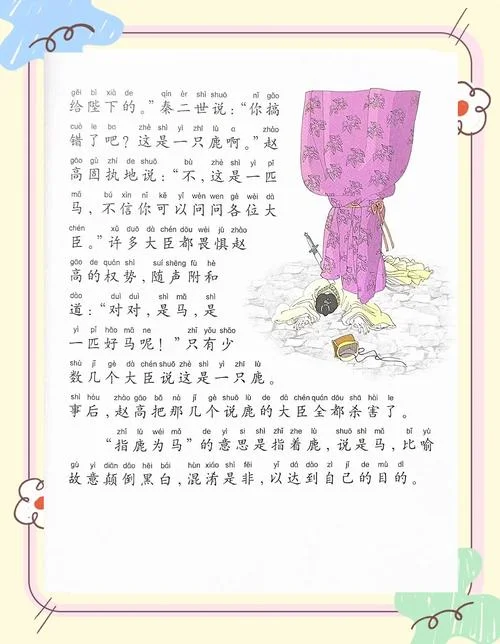 gěi bì xià de qín èr shì shuō nǐ gǎo
给陛下的。”秦二世说：“你搞
cuò le ba zhè shì yì zhī lù a zhào
错了吧？这是一只鹿啊。”赵
gāo gù zhí de shuō bù zhè shì yì pǐ
高固执地说：“不，这是一匹
mǎ bú xìn nǐ kě yǐ wèn wen gè wèi dà
马，不信你可以问问各位大
chén xǔ duō dà chén dōu wèi jù zhào
臣。”许多大臣都畏惧赵
gāo de quán shì suí shēng fù hè
高的权势，随声附和
dào duì duì shì mǎ shì
道：“对对，是马，是
yì pǐ hǎo mǎ ne zhǐ yǒu shǎo
一匹好马呢！”只有少
shù jǐ gè dà chén shuō zhè shì yì zhī lù
数几个大臣说这是一只鹿。
shì hòu zhào gāo bǎ nà jǐ gè shuō lù de dà chén quán dōu shā hài le
事后，赵高把那几个说鹿的大臣全都杀害了。
zhǐ lù wéi mǎ de yì si shì zhǐ zhe lù shuō shì mǎ bǐ yù
“指鹿为马”的意思是指着鹿，说是马，比喻
gù yì diān dǎo hēi bái hùn xiáo shì fēi yǐ dá dào zì jǐ de mù dì
故意颠倒黑白，混淆是非，以达到自己的目的。